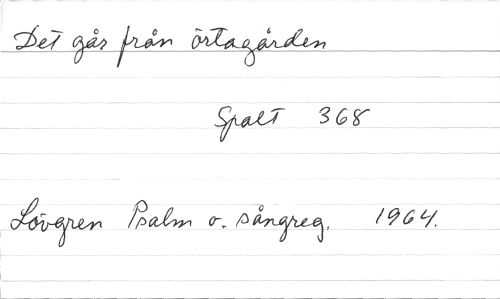 Det går från örtagården
Spalt 368
Lövgren Psalm o. sångreg. 1964.